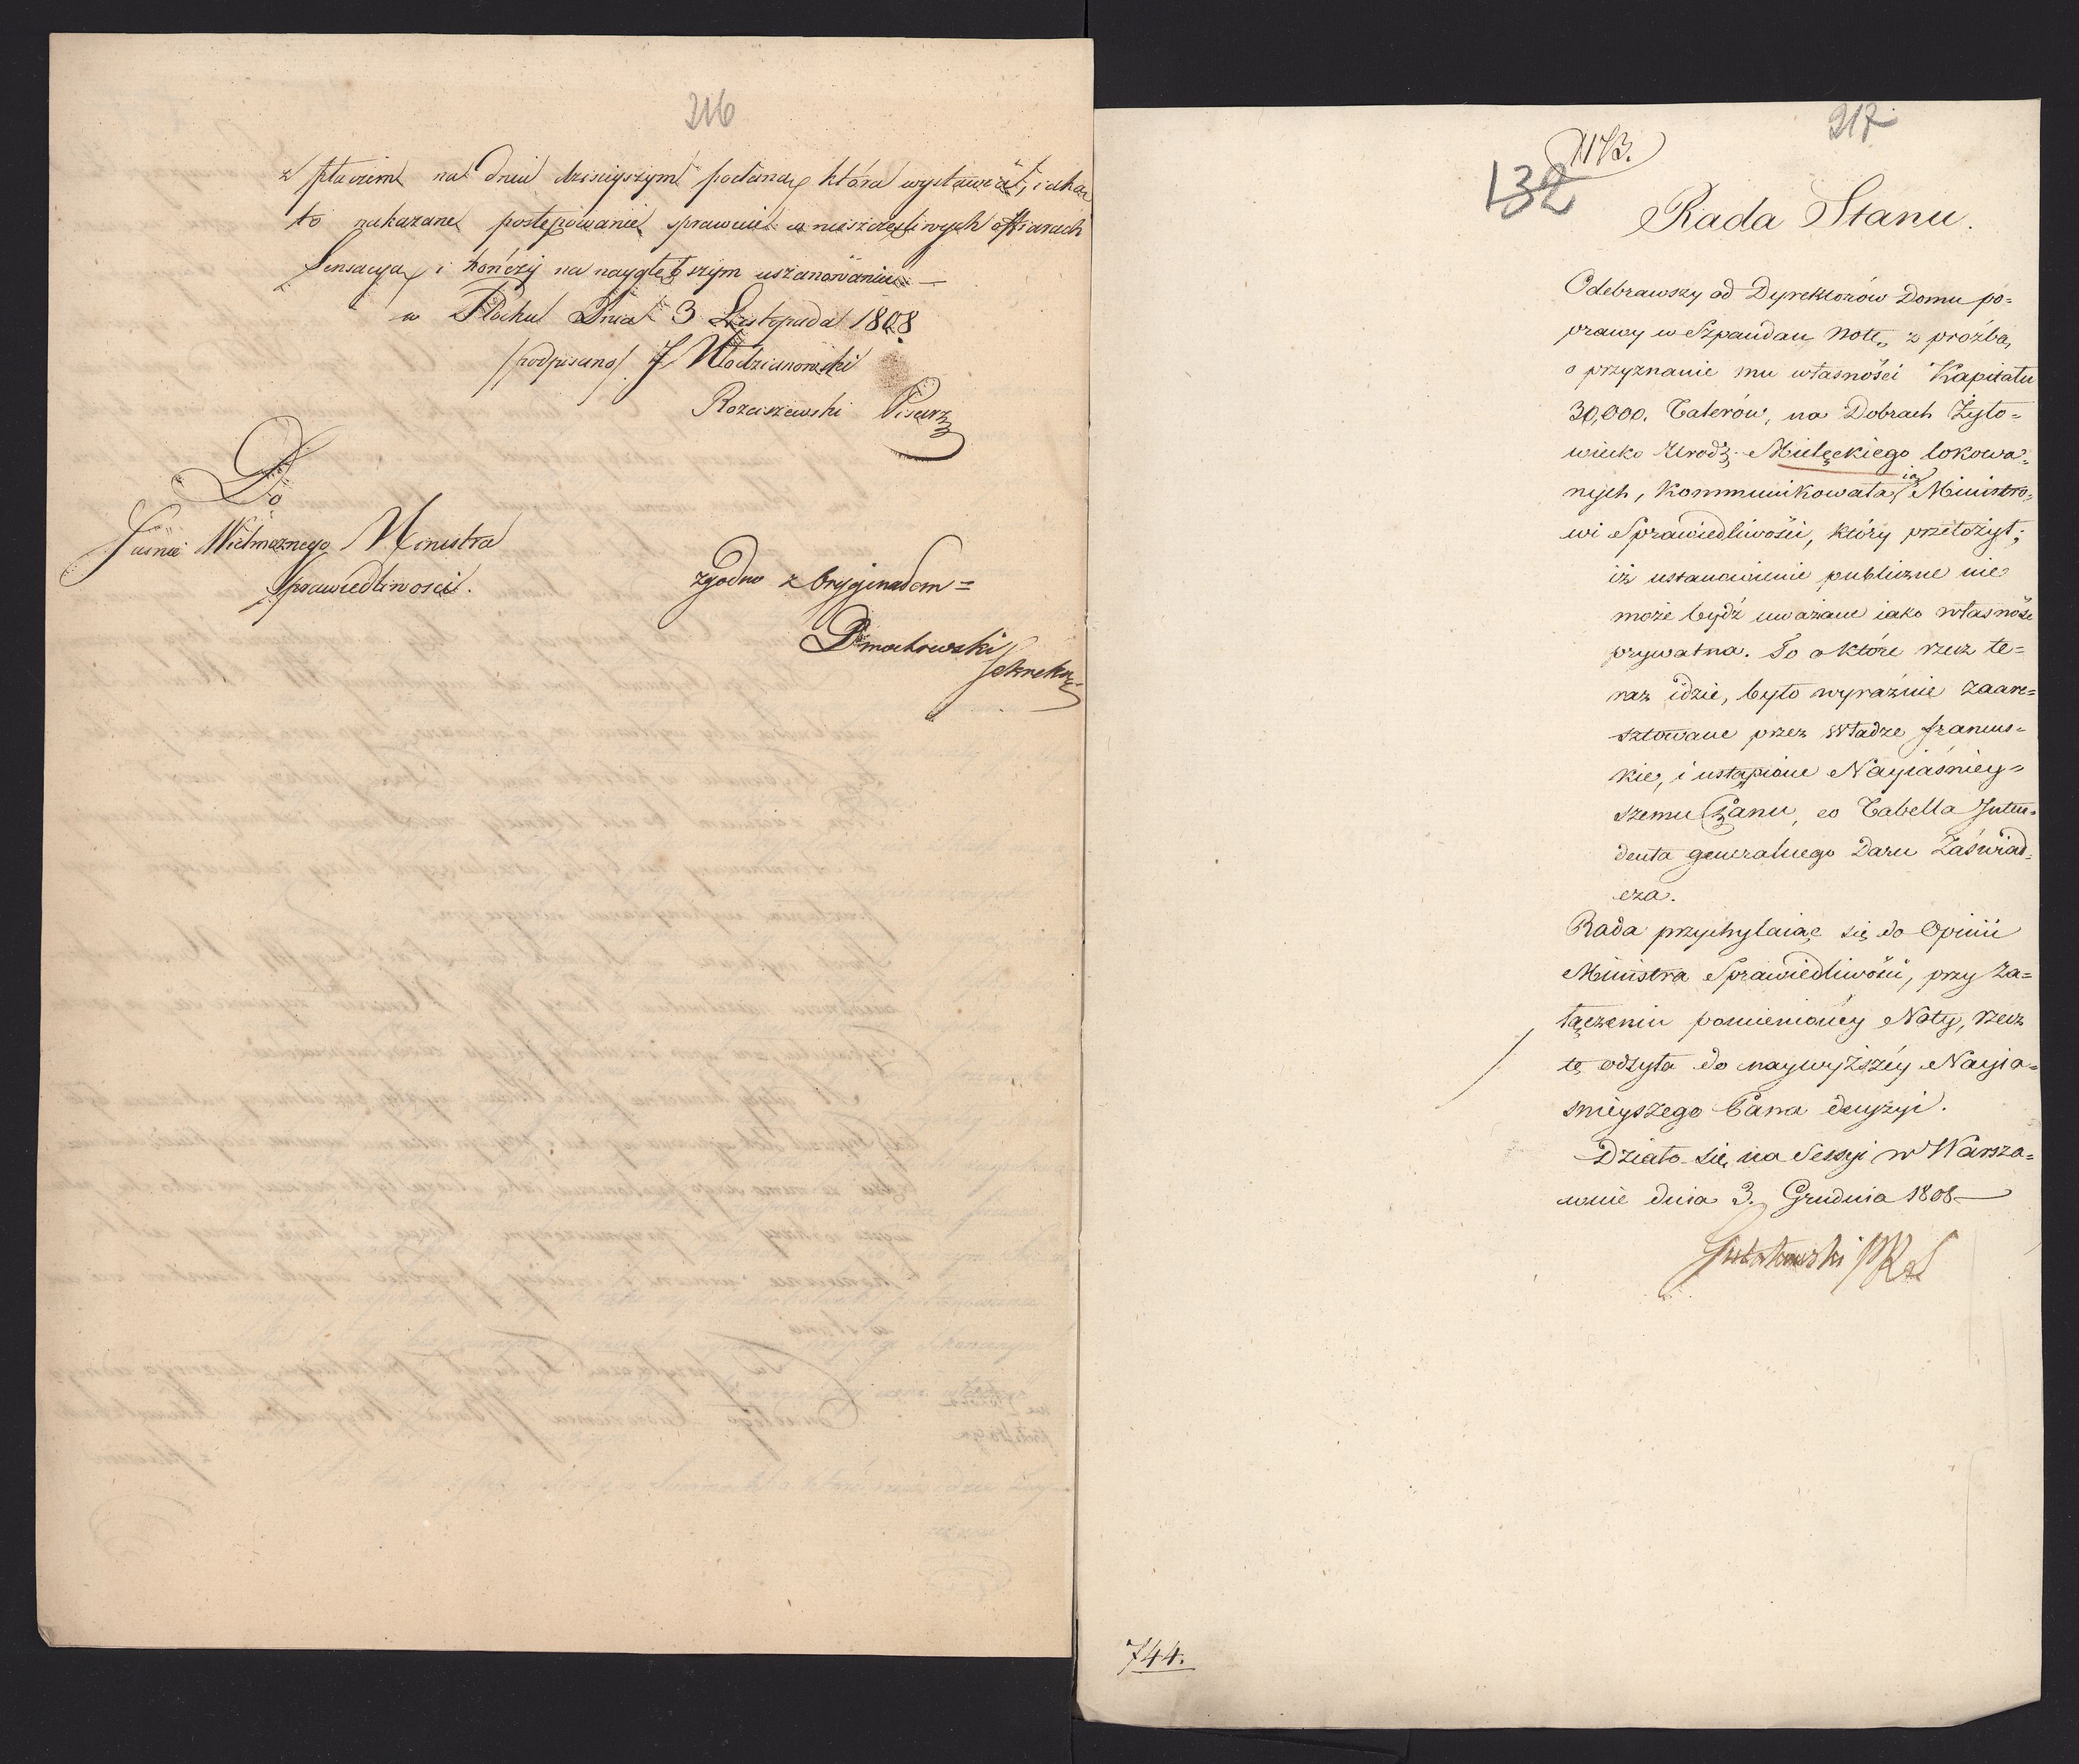 216
z płaczem na dniu dzisieyszym podana, która wystawiał, iaka
to nakazane postępowanie sprawuie w nieszczęśliwych offiarach
Sensacya, i kończy na naygłębszym uszanowaniu —
w Płocku Dnia 3 Listopada 1808
/podpisano/ J Włodzianowski
Rozciszewski Pisarz
Do
Jaśnie Wielmożnego Ministra
Sprawiedliwości.
zgodno z Oryginałem =
Dmochowski
Sekretarz
217
1173.
132
Rada Stanu.
Odebrawszy od Dyrektorów Domu po=
prawy w Szpandau Notę, z proźbą,
o przyznanie mu własności Kapitału
30,000. Talerów, na Dobrach Żyto=
wiecko Urodz. Mielęckiego lokowa=
nych, Kommunikowała ią Ministro=
wi Sprawiedliwości, który przełożył;
iż ustanowienie publiczne nie
może bydź uważane iako własność
prywatna. To o które rzecz te=
raz idzie, było wyraźnie zaare=
sztowane przez Władze francus=
kie, i ustąpione Nayiaśniey=
szemu Panu, co Tabella Inten=
denta generalnego Daru zaświad=
cza.
Rada przychylaiąc się do Opinii
Ministra Sprawiedliwości, przy za=
łączeniu pomienionéy Noty, rzecz
tę odsyła do naywyższéy Nayia=
śnieyszego Pana decyzyi.
Działo się na Sessyi w Warsza=
wie dnia 3. Grudnia 1808 —
744.